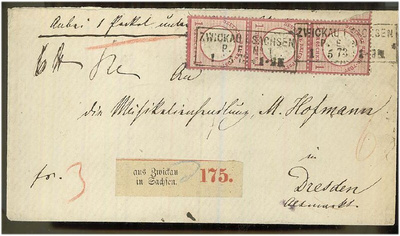 Anbei 1 Packet unter
ZWICKAU I SACHSEN
ZWICKAU I SACHSEN
5 73
An
die Musikalienhandlung, M. Hofmann
in
Dresden
Altmarkt.
aus Zwickau
in Sachsen.
175.
fr. 3